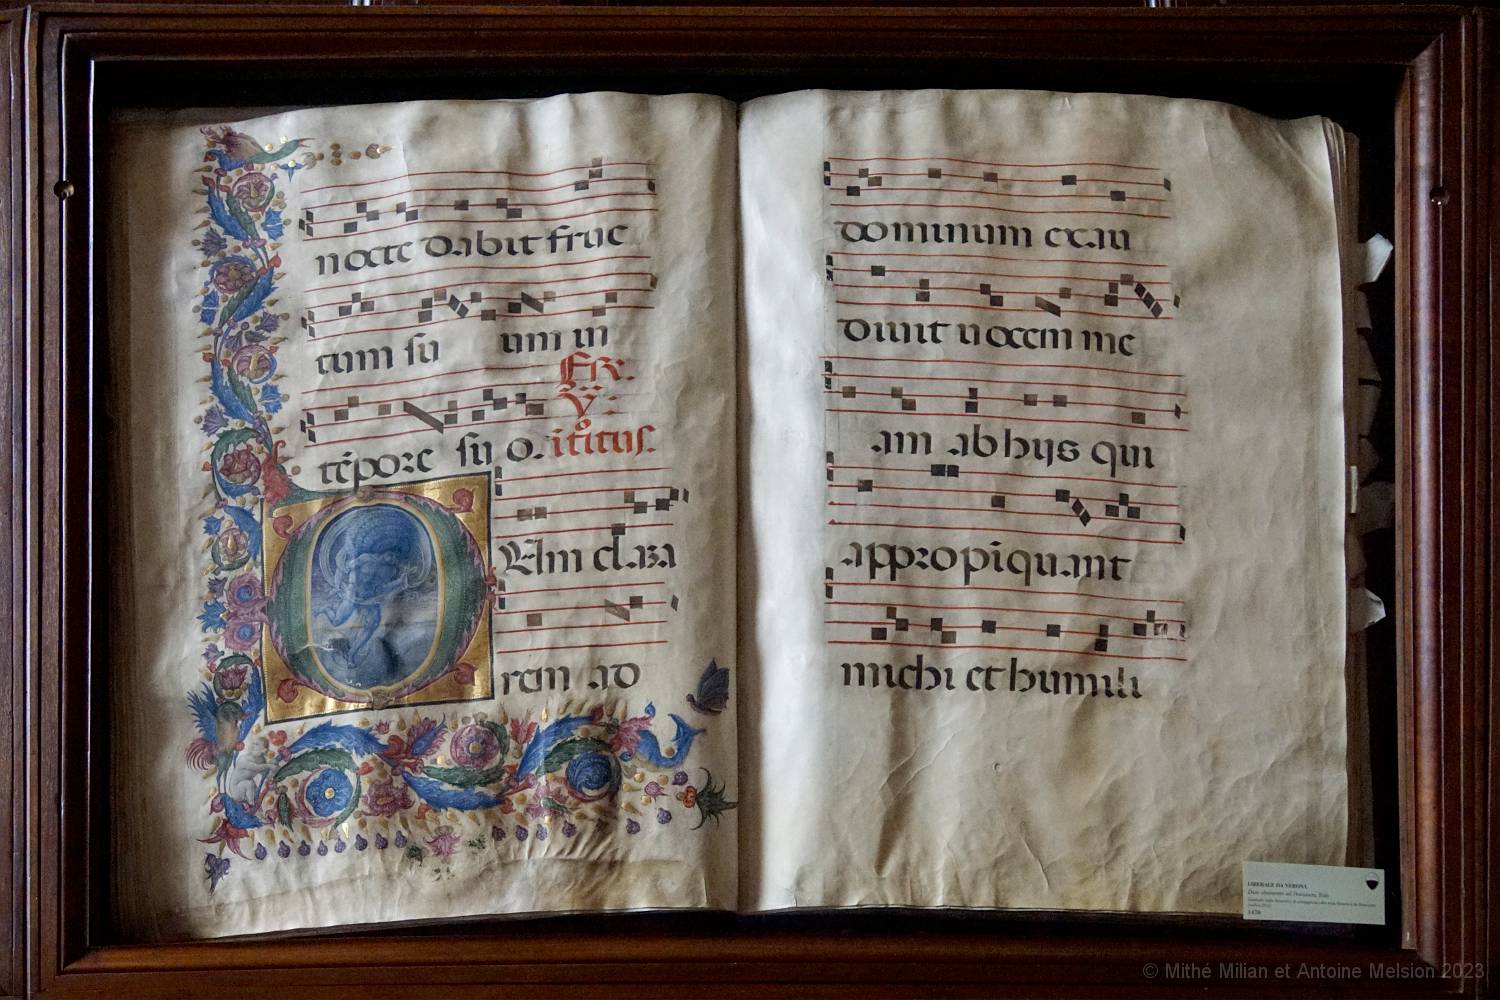 nocte dabit fruc
tum su um in
FER.
V.
tēpore su o. ititus.
UM clara
rem ad
dominum exau
diuit uocem me
am ab hijs qui
appropiquant
michi et humili
LIBERALE DA VERONA
Dum clamarem ad Dominum,
1470
© Mithé Milian et Antoine Melsion 2023